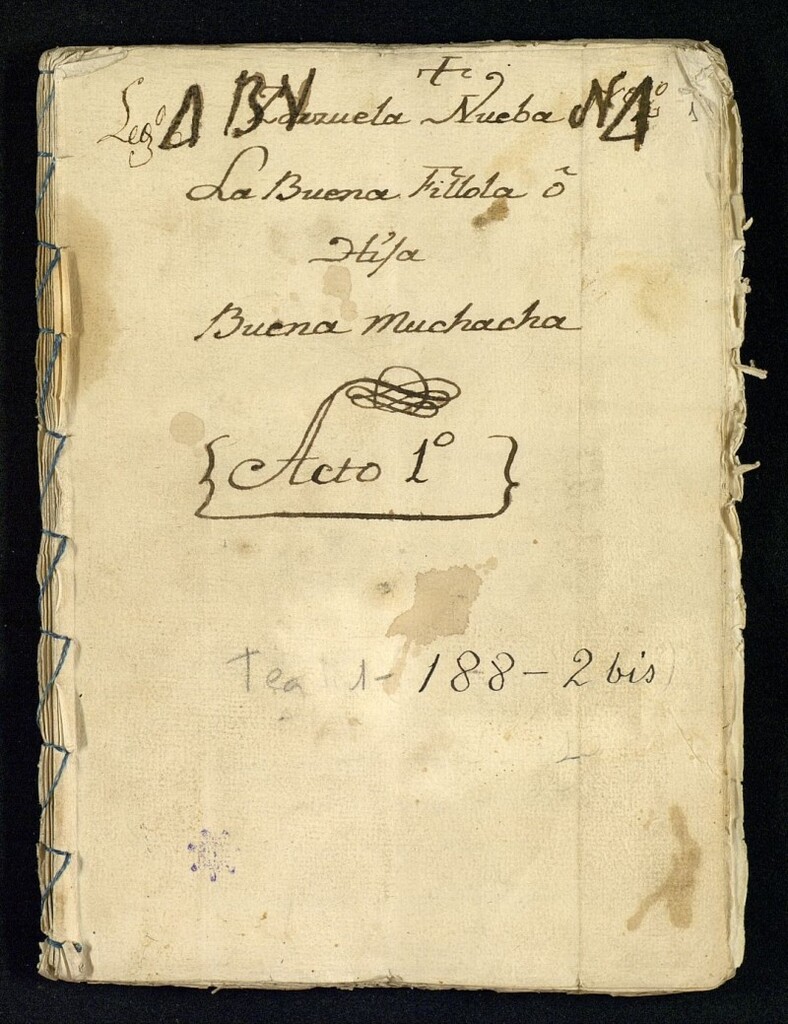 Leg.º Zarzuela Nueba
La Buena Fillola ô
Hija
Buena Muchacha
Acto 1º
Tea 1-188-2 bis